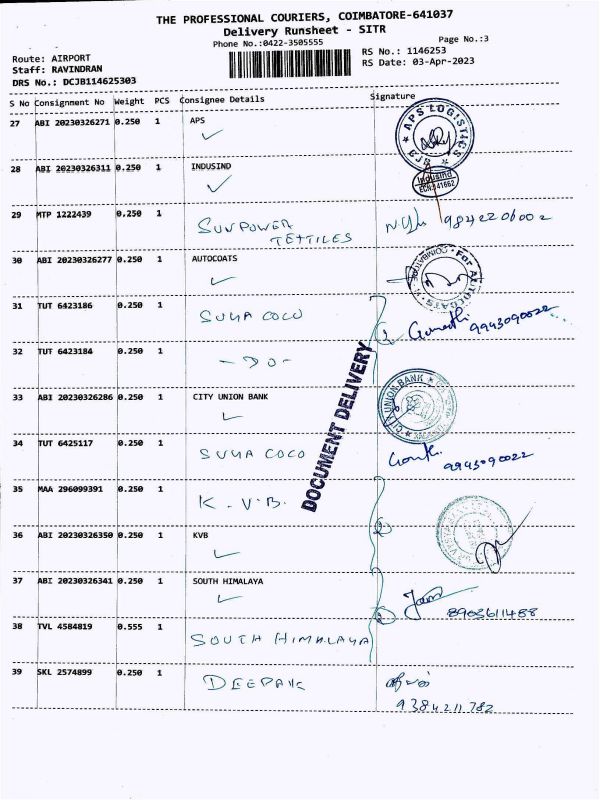 THE PROFESSIONAL COURIERS, COIMBATORE-641037
Delivery Runsheet - SITR
Phone No.:0422-3505555
Page No.:3
Route: AIRPORT
RS No.: 1146253
Staff: RAVINDRAN
RS Date: 03-Apr-2023
DRS No.: DCJB114625303
S No Consignment No Weight PCS Consignee Details Signature
27 ABI 20230326271 0.250 1 APS
APS LOGISTICS
CJB
28 ABI 20230326311 0.250 1 INDUSIND
IndusInd
29 MTP 1222439 0.250 1 SUNPOWER
TEXTILES
9842206002
30 ABI 20230326277 0.250 1 AUTOCOATS
For AUTOCOATS
COIMBATORE
31 TUT 6423186 0.250 1 SUGA COCO
9943090022
32 TUT 6423184 0.250 1 - DO -
DOCUMENT DELIVERY
33 ABI 20230326286 0.250 1 CITY UNION BANK
CITY UNION BANK
34 TUT 6425117 0.250 1 SUGA COCO
9943090022
35 MAA 296099391 0.250 1 K.V.B.
36 ABI 20230326350 0.250 1 KVB
37 ABI 20230326341 0.250 1 SOUTH HIMALAYA
8903611488
38 TVL 4584819 0.555 1 SOUTH HIMALAYA
39 SKL 2574899 0.250 1 DEEPAK
9384211782